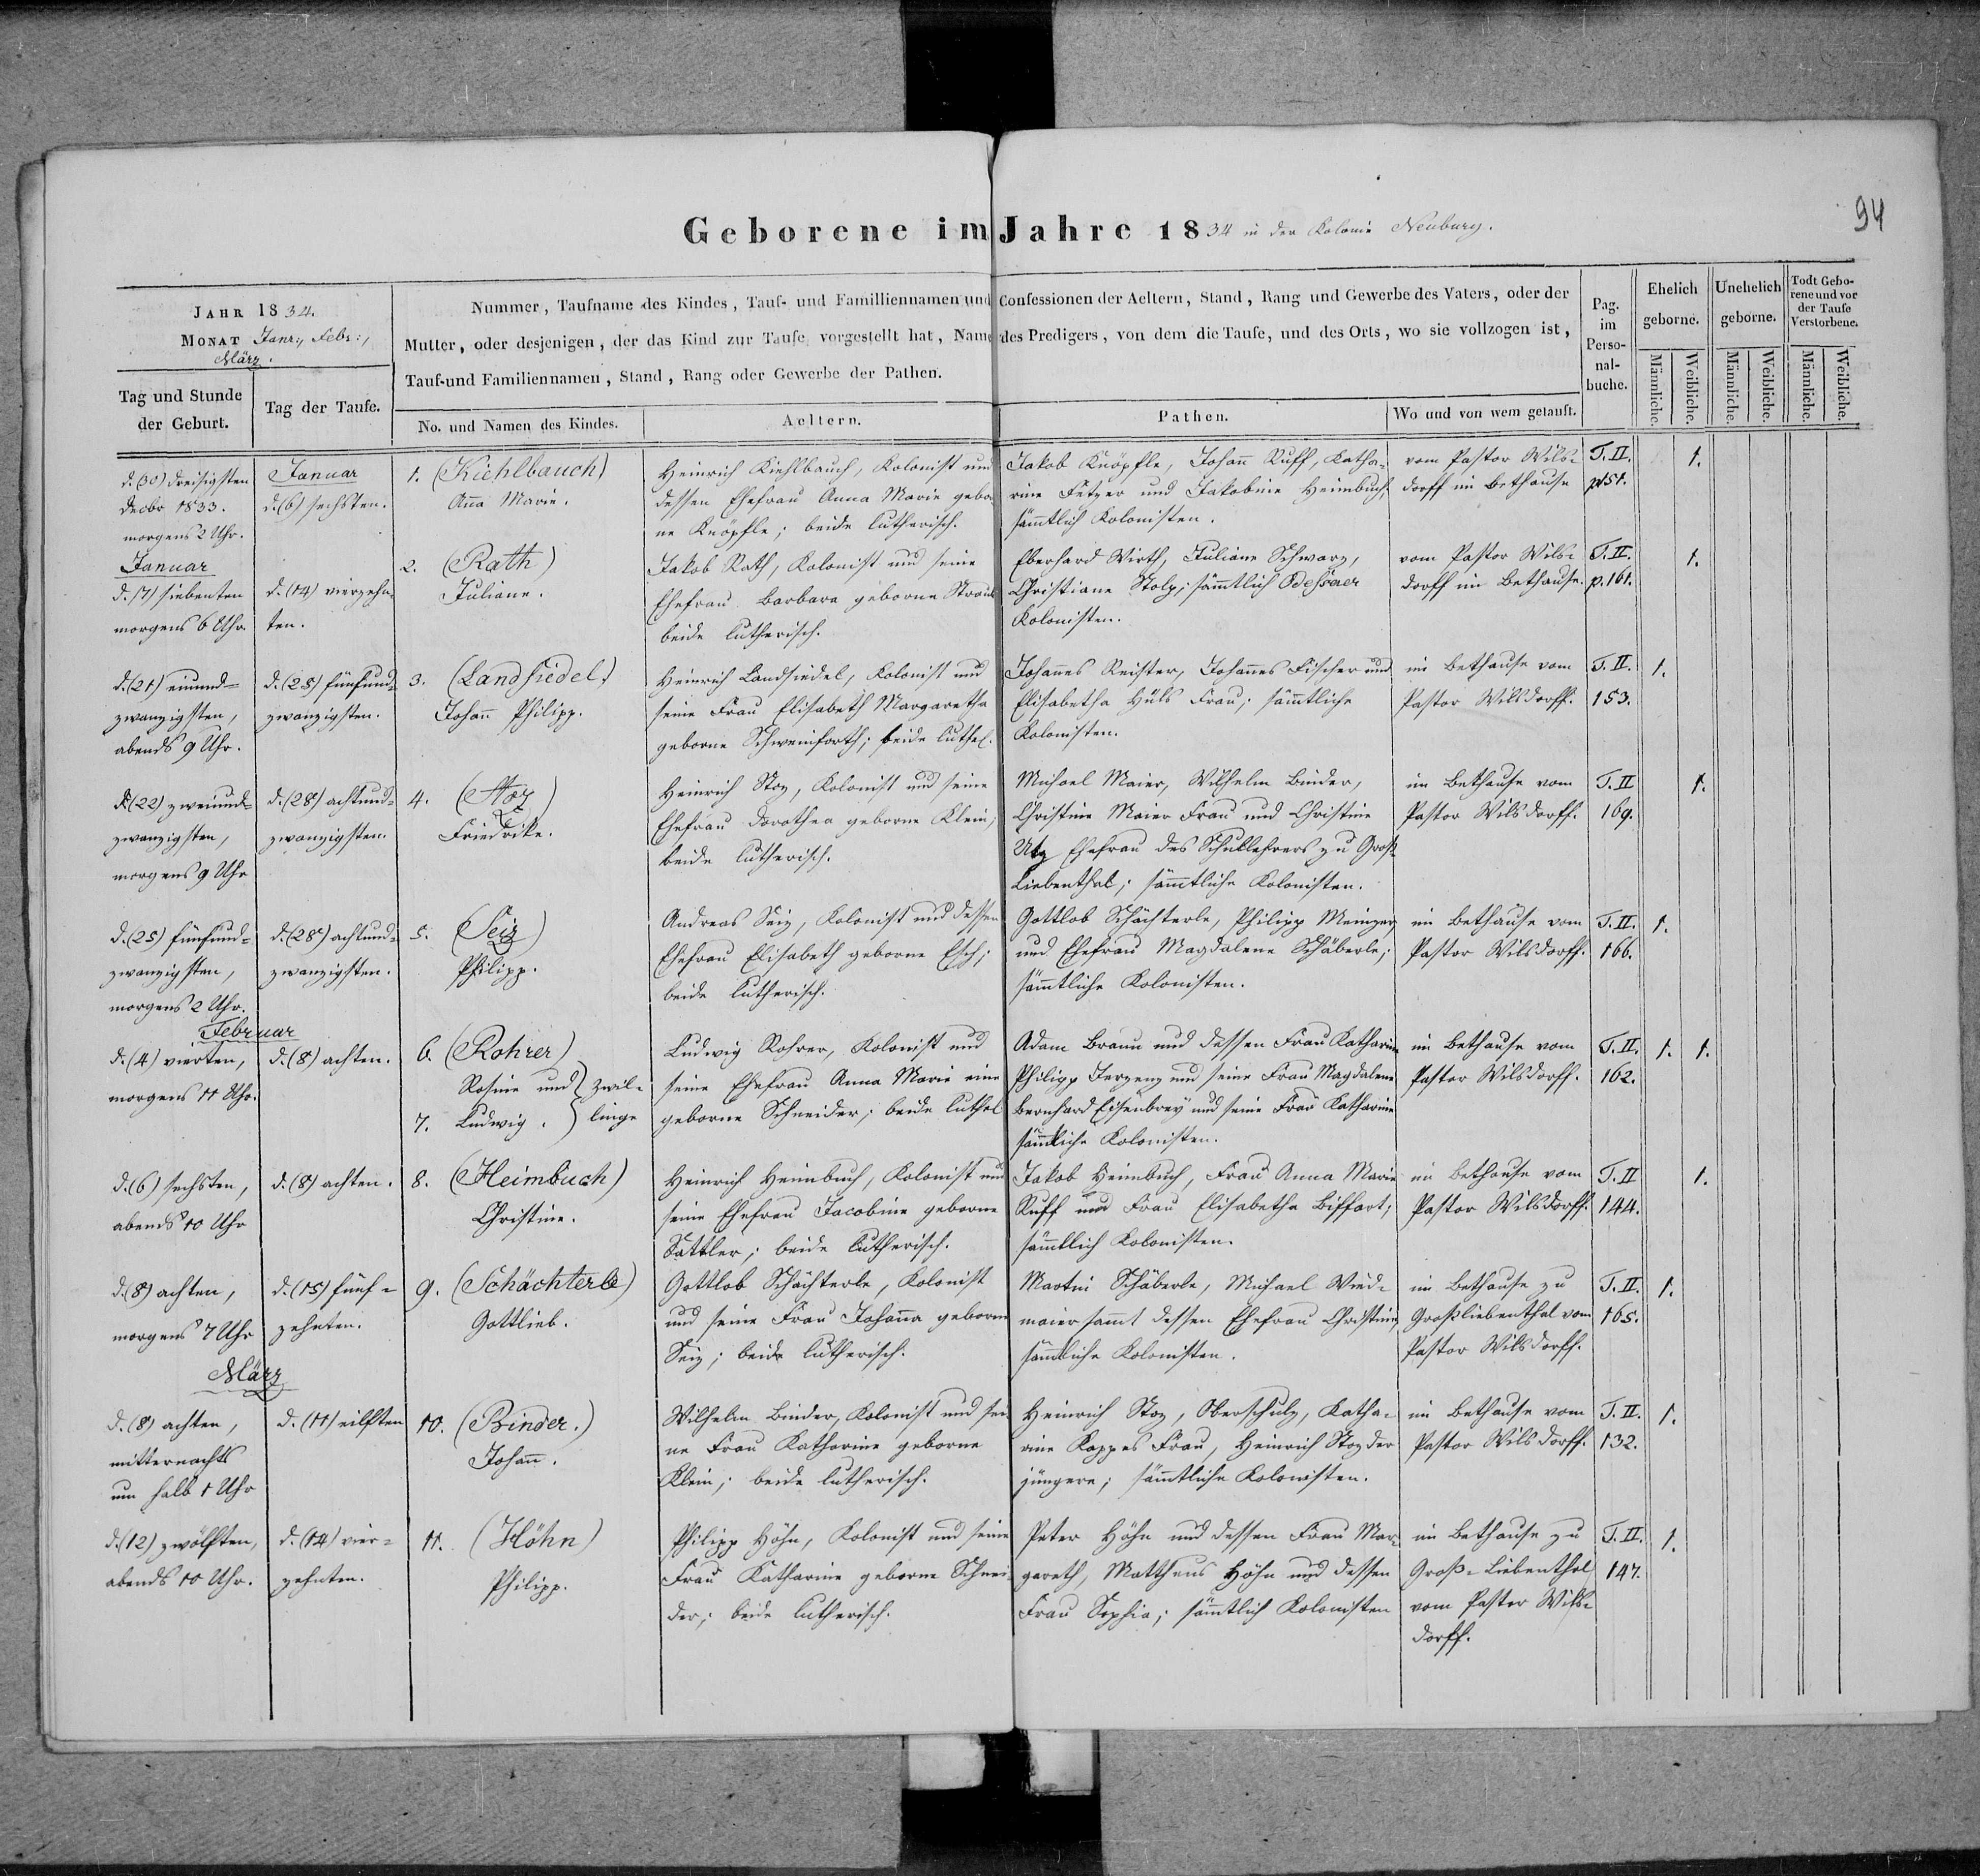 94
Geborene im Jahre 1834 in der Kolonie Neuburg.
JAHR 1834.
MONAT Janr:, Febr:,
März.
Tag und Stunde
der Geburt.
Tag der Taufe.
Nummer, Taufname des Kindes, Tauf- und Familliennamen und Confessionen der Aeltern, Stand, Rang und Gewerbe des Vaters, oder der
Mutter, oder desjenigen, der das Kind zur Taufe vorgestellt hat, Name des Predigers, von dem die Taufe, und des Orts, wo sie vollzogen ist,
Tauf-und Familiennamen, Stand, Rang oder Gewerbe der Pathen.
No. und Namen des Kindes.
Aeltern.
Pathen.
Wo und von wem getauft.
Pag.
im
Perso-
nal-
buche.
Ehelich
geborne.
Unehelich
geborne.
Todt Gebo-
rene und vor
der Taufe
Verstorbene.
Männliche.
Weibliche.
Männliche.
Weibliche.
Männliche.
Weibliche.
d. (30) dreisigsten
Decbr 1833.
morgens 2 Uhr.
Januar
d. (6) sechsten.
1. (Kiehlbauch)
Anna Marie.
Heinrich Kiehlbauch, Kolonist und
dessen Ehefrau Anna Marie gebor
ne Knöpfle; beide lutherisch.
Jakob Knöpfle, Johann Ruff, Katha-
rine Fetzer und Jakobine Heimbuch,
sämmtlich Kolonisten.
vom Pastor Wils-
dorff im Bethause
T. II.
p 151.
1.
Januar
d. (7) siebenten
morgens 6 Uhr.
d. (14) vierzehn-
ten.
2. (Rath)
Juliane.
Jakob Rath, Kolonist und seine
Ehefrau Barbara geborne Straub
beide lutherisch.
Eberhard Wirth, Juliane Schwarz,
Christiane Stolz; sämmtlich
Kolonisten.
vom Pastor Wils-
dorff im Bethause.
T. II.
p. 161.
1.
d. (21) einund-
zwanzigsten,
abends 9 Uhr.
d. (25) fünfund-
zwanzigsten.
3. (Landsiedel)
Johann Philipp.
Heinrich Landsiedel, Kolonist und
seine Frau Elisabeth Margaretha
geborne Schweinforth; beide luthe.
Johannes Reister, Johannes Fischer und
Elisabetha Hüls Frau; sämmtliche
Kolonisten.
im Bethause vom
Pastor Wilsdorff.
T. II.
153.
1.
d. (22) zweiund-
zwanzigsten,
morgens 9 Uhr
d. (28) achtund-
zwanzigsten.
4. (Stoz)
Friedrike.
Heinrich Stoz, Kolonist und seine
Ehefrau Dorothea geborne Klein;
beide lutherisch.
Michael Maier, Wilhelm Binder,
Christine Maier Frau und Christine
Utz Ehefrau des Schullehrers zu Groß
Liebenthal; sämmtliche Kolonisten.
im Bethause vom
Pastor Wilsdorff.
T. II
169.
1.
d. (25) fünfund-
zwanzigsten,
morgens 2 Uhr.
d. (28) achtund-
zwanzigsten.
5. (Seiz)
Philipp.
Andreas Seiz, Kolonist und dessen
Ehefrau Elisabeth geborne Esch;
beide lutherisch.
Gottlob Schächterle, Philipp Meinzer
und Ehefrau Magdalene Schäberle;
sämmtliche Kolonisten.
im Bethause vom
Pastor Wilsdorff.
T. II.
166.
1.
Februar
d. (4) vierten,
morgens 11 Uhr.
d. (8) achten.
6. (Rohrer)
Rosine und } zwil-
7. Ludwig. } linge
Ludwig Rohrer, Kolonist und
seine Ehefrau Anna Marie eine
geborne Schneider; beide luthe
Adam Braun und dessen Frau Katharine
Philipp und seine Frau Magdalene
Bernhard Eisenbrey und seine Frau Katharine
sämmtliche Kolonisten.
im Bethause vom
Pastor Wilsdorff.
T. II.
162.
1. 1.
d. (6) sechsten,
abends 10 Uhr
d. (8) achten.
8. (Heimbuch)
Christine.
Heinrich Heimbuch, Kolonist und
seine Ehefrau Jacobine geborne
Sattler; beide lutherisch.
Jakob Heimbuch, Frau Anna Marie
Ruff und Frau Elisabetha Biffart;
sämmtlich Kolonisten.
im Bethause vom
Pastor Wilsdorff.
T. II
144.
1.
d. (8) achten,
morgens 7 Uhr
d. (15) fünf-
zehnten.
9. (Schächterle)
Gottlieb.
Gottlob Schächterle, Kolonist
und seine Frau Johanna geborne
Seiz; beide lutherisch.
Martin Schäberle, Michael Wied-
maier sammt dessen Ehefrau Christine,
sämmtliche Kolonisten.
im Bethause zu
Großliebenthal vom
Pastor Wilsdorff.
T. II.
165.
1.
März
d. (8) achten,
mitternachts
um halb 1 Uhr
d. (11) eilften
10. (Binder.)
Johann.
Wilhelm Binder, Kolonist und sei-
ne Frau Katharine geborne
Klein; beide lutherisch.
Heinrich Stoz, Oberschulz, Katha-
rine Kappes Frau, Heinrich Stoz der
jüngere; sämmtliche Kolonisten.
im Bethause vom
Pastor Wilsdorff.
T. II.
132.
1.
d. (12) zwölften,
abends 10 Uhr.
d. (14) vier-
zehnten.
11. (Höhn)
Philipp.
Philipp Höhn, Kolonist und seine
Frau Katharine geborne Schnei-
der; beide lutherisch.
Peter Höhn und dessen Frau Mar-
gareth, Matthaus Höhn und dessen
Frau Sophia; sämmtlich Kolonisten
im Bethause zu
Groß-Liebenthal
vom Pastor Wils-
dorff.
T. II.
147.
1.